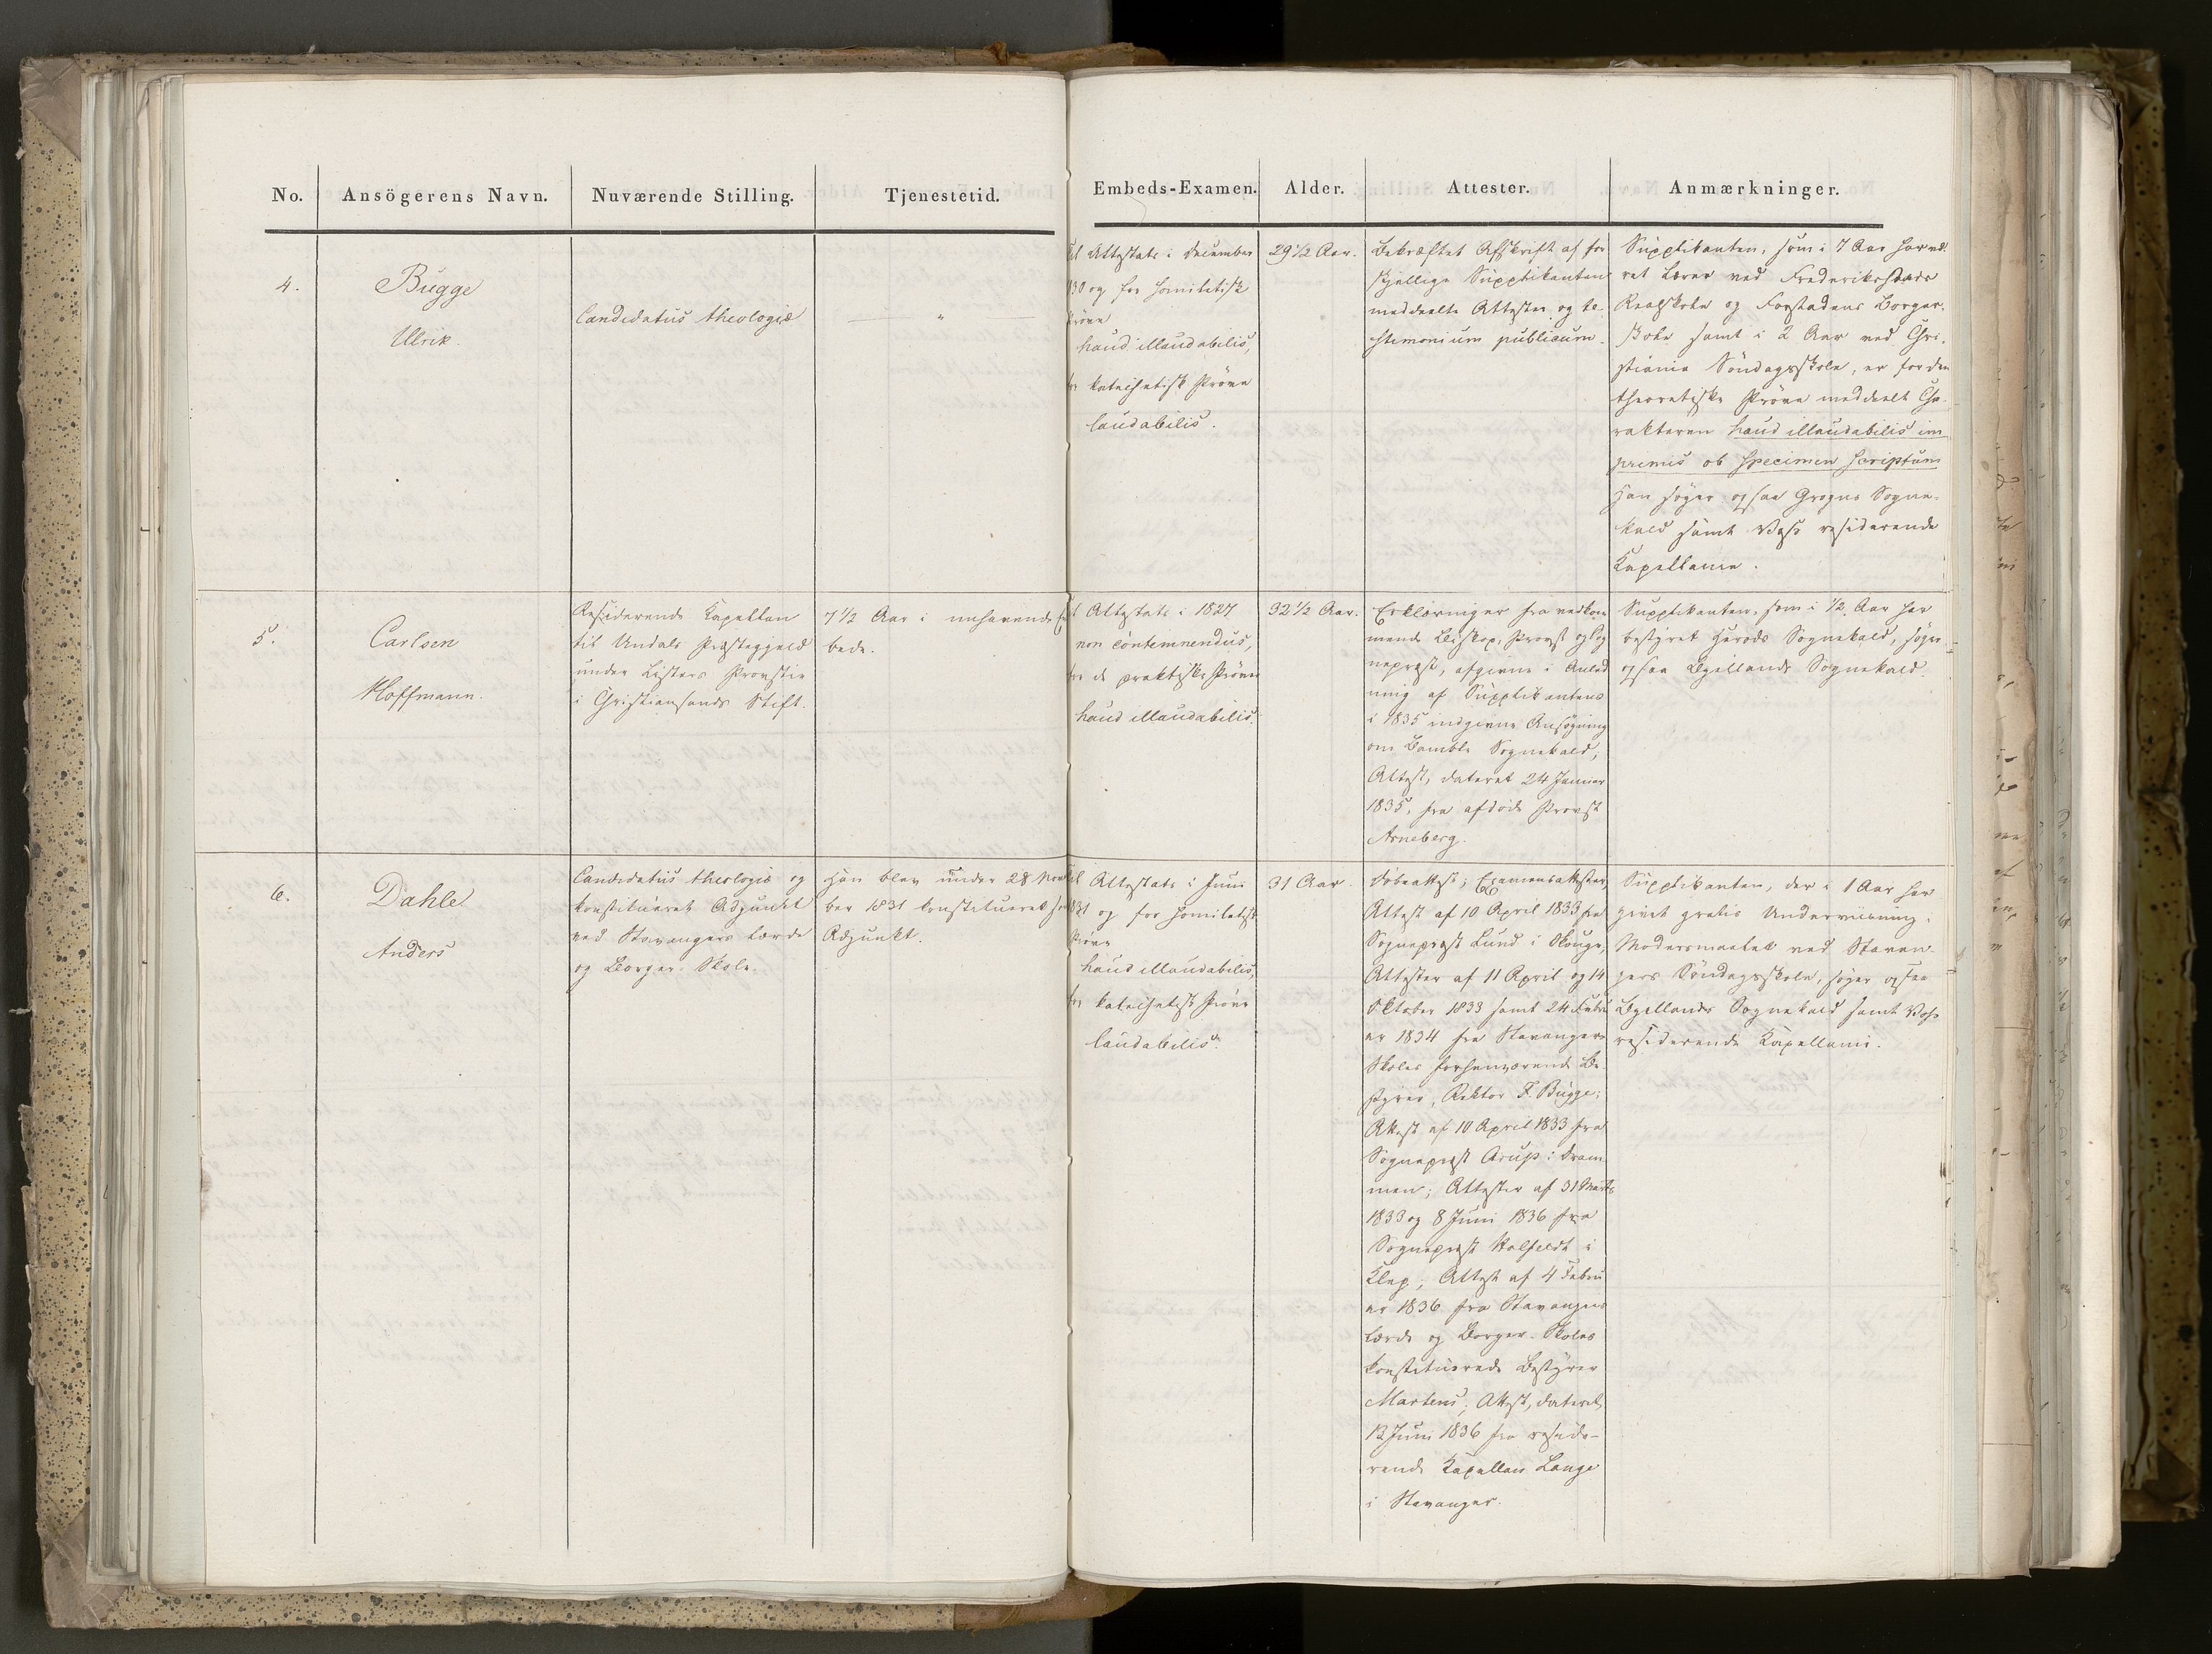 No. Ansögerens Navn. Nuværende Stilling. Tjenestetid. Embeds-Examen. Alder. Attester. Anmærkninger.
4.
Bugge
Ulrik.
Candidatus theologiæ
"
til Attestats i December
1830 og for homiletisk
Pröve
haud illaudabilis,
for katechetisk Pröve
laudabilis.
29 1/2 Aar.
Bekræftet Afskrift af for
skjellige Supplikanten
meddeelte Attester og te-
stimonium publicum.
Supplikanten, som i 7 Aar har væ
ret Lærer ved Frederikshalds
Realskole og Forstadens Borger-
skole samt i 2 Aar ved Chri-
stiania Söndagsskole, er for den
theoretiske Pröve meddeelt Cha-
rakteren haud illaudabilis im
primis ob specimen scriptum
Han söger ogsaa Grogns Sogne-
kald samt Voss residerende
Kapellanie.
5.
Carlsen
Hoffmann.
Residerende Kapellan
til Undals Præstegjeld
under Listers Provstie
i Christiansands Stift.
7 1/2 Aar i nuhavende Em
bede.
til Attestats i 1827
non contemnendus,
for de praktiske Pröver
haud illaudabilis.
32 1/2 Aar.
Erklæringer fra vedkom
mende Biskop, Provst og Sog
nepræst, afgivne i Anled
ning af Supplikantens
i 1835 indgivne Ansögning
om Bamble Sognekald;
Attest, dateret 24 Januar
1835, fra afdöde Provst
Arneberg.
Supplikanten, som i 1/2 Aar har
bestyret Herøds Sognekald, söger
ogsaa Bygllands Sognekald.
6.
Dahle
Anders
Candidatus theologiæ og
konstitueret Adjunkt
ved Stavangers lærde
og Borger-Skole.
Han blev under 28 Novem
ber 1831 konstitueret som
Adjunkt.
til Attestats i Juni
1831 og for homiletisk
Pröve
haud illaudabilis,
for katechetisk Pröve
laudabilis.
31 Aar.
Döbeattest; Examensattester,
Attest af 10 April 1833 fra
Sognepræst Lund i Skouge,
Attester af 11 April og 14
Oktober 1833 samt 24 Febru
ar 1834 fra Stavangers
Skoles forhenværende Be-
styrer, Rektor F. Bugge;
Attest af 10 April 1833 fra
Sognepræst Arup i Dram
men; Attester af 31 Marts
1833 og 8 Juni 1836 fra
Sognepræst Holfeldt i
Klep; Attest af 4 Febru
ar 1836 fra Stavangers
lærde og Borger-Skoles
konstituerede Bestyrer
Martens; Attest, dateret
12 Juni 1836 fra reside-
rende Kapellan Lange
i Stavanger.
Supplikanten, der i 1 Aar har
givet gratis Underviisning i
Modersmaalet ved Stavan-
gers Söndagsskole, söger ogsaa
Bygllands Sognekald samt Voss
residerende Kapellani.